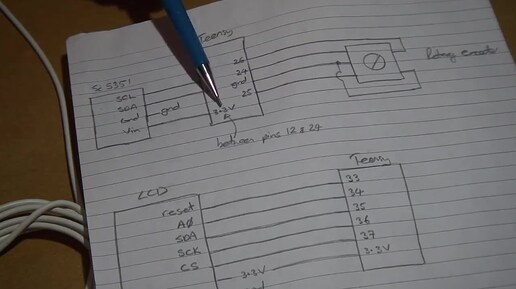 Teensy
Si5351
SCL
SDA
Gnd
Vin
gnd
26
24
gnd
25
3.3V
Rotary encoder
between pins 12 & 24
LCD
reset
A0
SDA
SCK
CS
3.3V
Teensy
33
34
35
36
37
3.3V